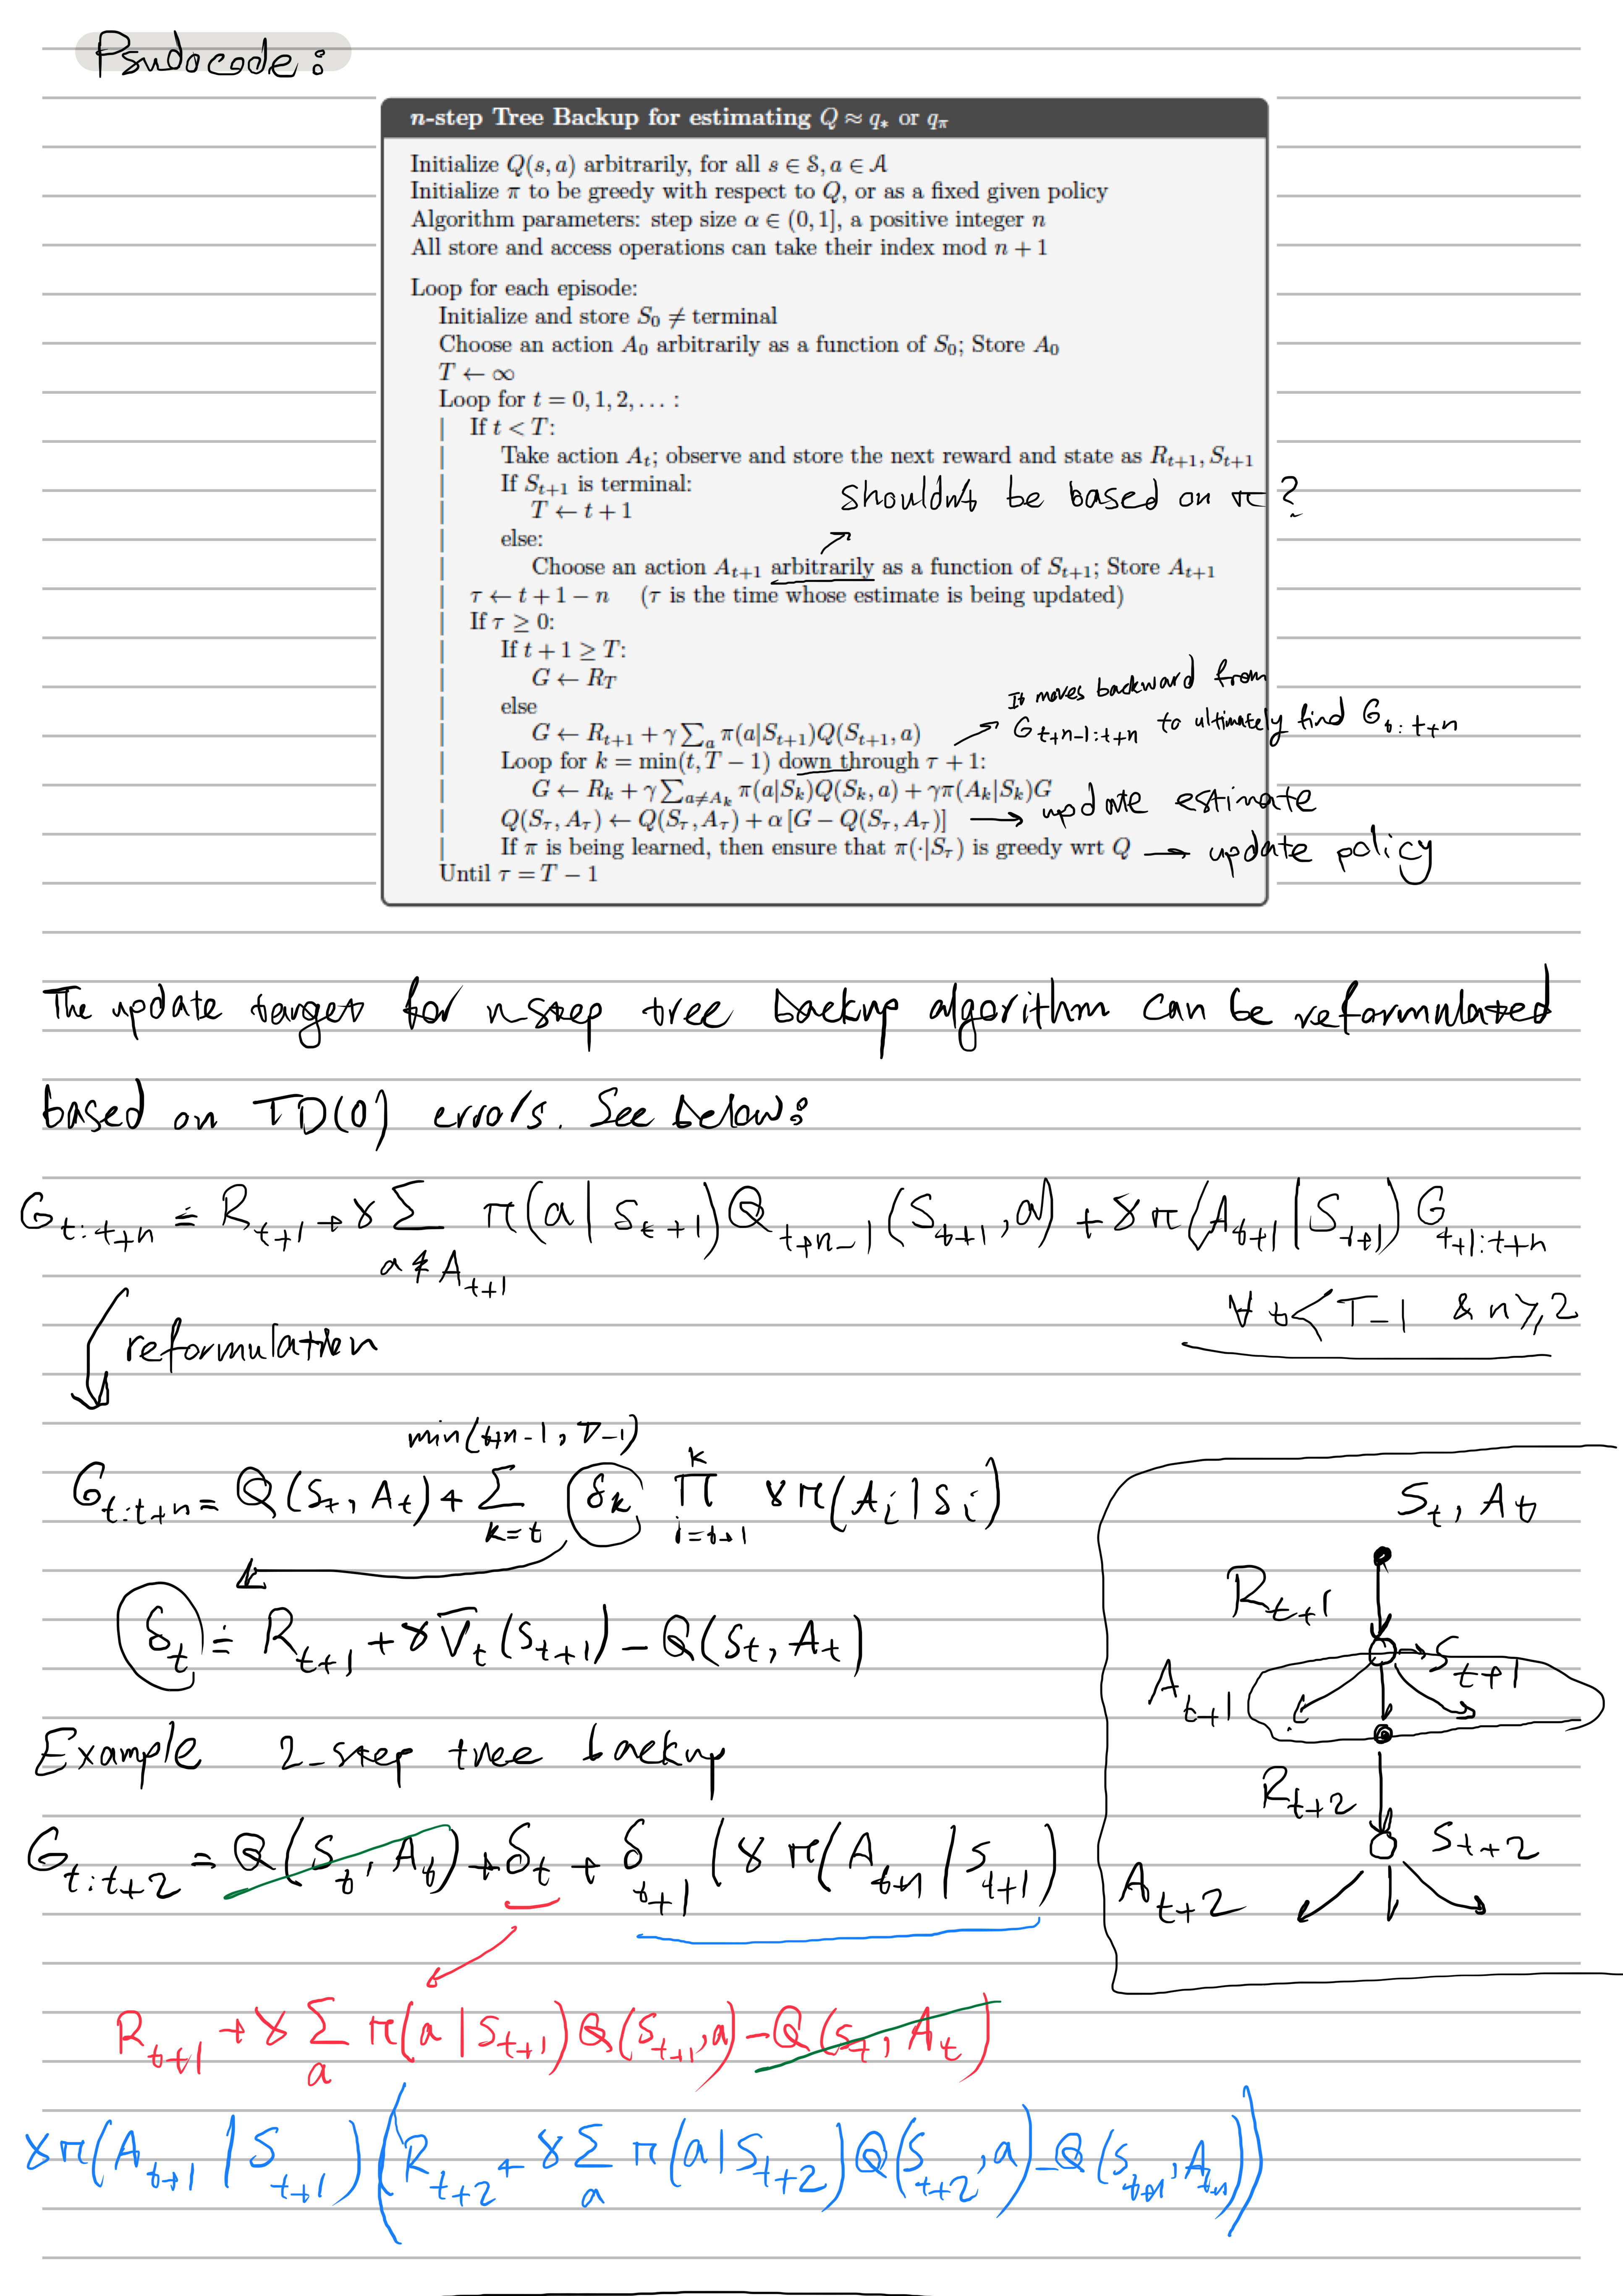 Psudocode:
n-step Tree Backup for estimating Q ≈ q* or qπ
Initialize Q(s, a) arbitrarily, for all s ∈ S, a ∈ A
Initialize π to be greedy with respect to Q, or as a fixed given policy
Algorithm parameters: step size α ∈ (0, 1], a positive integer n
All store and access operations can take their index mod n + 1
Loop for each episode:
Initialize and store S₀ ≠ terminal
Choose an action A₀ arbitrarily as a function of S₀; Store A₀
T ← ∞
Loop for t = 0, 1, 2, . . . :
| If t < T:
| Take action A_t; observe and store the next reward and state as R_{t+1}, S_{t+1}
| If S_{t+1} is terminal:
shouldn't be based on π ?
| T ← t + 1
| else:
| Choose an action A_{t+1} arbitrarily as a function of S_{t+1}; Store A_{t+1}
| τ ← t + 1 − n (τ is the time whose estimate is being updated)
| If τ ≥ 0:
| If t + 1 ≥ T:
| G ← R_T
It moves backward from
| else
G_{t+n-1:t+n} to ultimately find G_{t:t+n}
| G ← R_{t+1} + γ∑_a π(a|S_{t+1})Q(S_{t+1}, a)
| Loop for k = min(t, T − 1) down through τ + 1:
| G ← R_k + γ∑_{a≠A_k} π(a|S_k)Q(S_k, a) + γπ(A_k|S_k)G
| Q(S_τ, A_τ) ← Q(S_τ, A_τ) + α [G − Q(S_τ, A_τ)] → update estimate
| If π is being learned, then ensure that π(·|S_τ) is greedy wrt Q → update policy
Until τ = T − 1
The update target for n-step tree backup algorithm can be reformulated
based on TD(0) errors. See below:
G_{t:t+n} ≐ R_{t+1} + γ ∑_{a≠A_{t+1}} π(a|S_{t+1})Q_{t+n-1}(S_{t+1}, a) + γπ(A_{t+1}|S_{t+1}) G_{t+1:t+n}
∀ t < T-1 & n ≥ 2
reformulation
G_{t:t+n} = Q(S_t, A_t) + ∑_{k=t}^{min(t+n-1, T-1)} δ_k ∏_{i=t+1}^{k} γπ(A_i|S_i)
δ_t ≐ R_{t+1} + γV̄_t(S_{t+1}) − Q(S_t, A_t)
S_t, A_t
R_{t+1}
S_{t+1}
A_{t+1}
R_{t+2}
S_{t+2}
A_{t+2}
Example 2-step tree backup
G_{t:t+2} = Q(S_t, A_t) + δ_t + δ_{t+1} (γ π(A_{t+1}|S_{t+1})
R_{t+1} + γ ∑_a π(a|S_{t+1})Q(S_{t+1}, a) − Q(S_t, A_t)
γπ(A_{t+1}|S_{t+1}) (R_{t+2} + γ∑_a π(a|S_{t+2})Q(S_{t+2}, a) − Q(S_{t+1}, A_{t+1}))